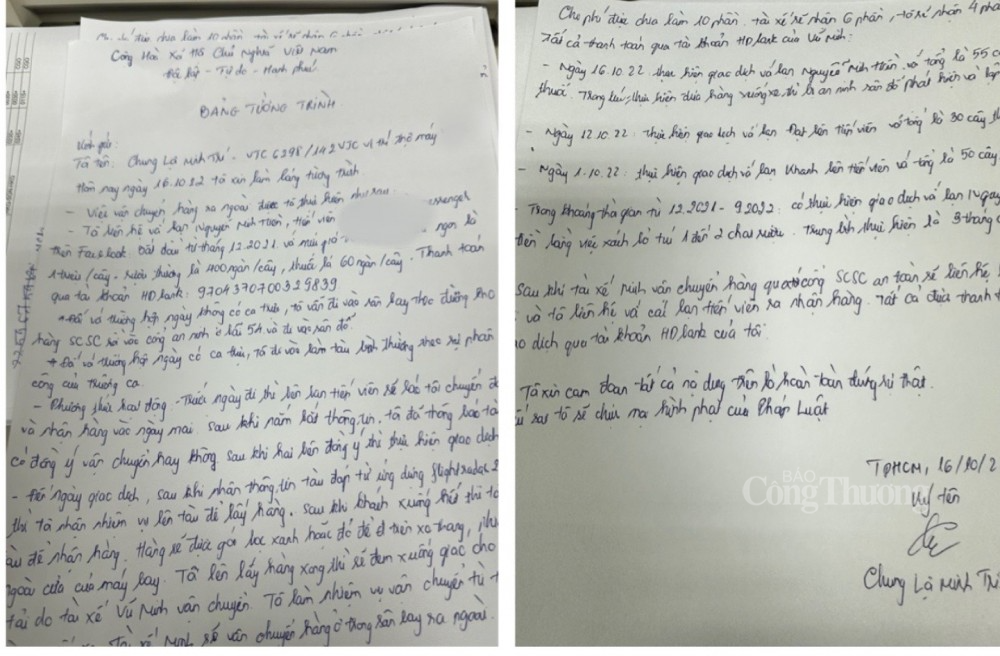 Cộng Hòa Xã Hội Chủ Nghĩa Việt Nam
Độc lập - Tự do - Hạnh phúc
BẢNG TƯỜNG TRÌNH
Kính gửi:
Tôi tên: Chung Lợi Minh Trí - VJC 6398/142 VJC vị trí thợ máy
Hôm nay ngày 16.10.22 tôi xin làm bảng tường trình
- Việc vận chuyển hàng ra ngoài được tôi thực hiện như sau:
- Tôi liên hệ với bạn Nguyễn Minh Tuấn, tiếp viên
trên Facebook. Bắt đầu từ tháng 12.2021. với mức giá ngon là
1 triệu/cây. rượu thường là 400 ngàn/cây, thuốc lá 60 ngàn/cây. Thanh toán
qua tài khoản HDbank: 9704370700329839
* Đối với trường hợp ngày không có ca trực, tôi vẫn đi vào sân bay theo đường kho
hàng SCSC rồi vào cổng an ninh ở bãi 5A và đi vào sân đỗ.
* Đối với trường hợp ngày có ca trực, tôi đi vào làm tàu bình thường theo sự phân
công của trưởng ca.
- Phương thức hoạt động: Trước ngày đi thì bên bạn tiếp viên sẽ báo tôi chuyến
và nhận hàng vào ngày mai. Sau khi nắm bắt thông tin. tôi đó thông báo tài
có đồng ý vận chuyển hay không. sau khi hai bên đồng ý thì thực hiện giao dịch
- Đến ngày giao dịch, sau khi nhận thông tin tàu đáp từ ứng dụng flightradar 2
thì tôi nhận nhiệm vụ lên tàu để lấy hàng. Sau khi khách xuống hết thì tô
để nhận hàng. Hàng sẽ được gói bọc xanh hoặc đỏ để ở trên xe thang,
ngoài cửa của máy bay. Tôi lên lấy hàng xong thì sẽ đem xuống giao cho
tải do tài xế Vũ Minh vận chuyển. Tôi làm nhiệm vụ vận chuyển từ t
Tài xế Minh sẽ vận chuyển hàng ở trong sân bay ra ngoài.
Chi phí được chia làm 10 phần. tài xế sẽ nhận 6 phần, tôi sẽ nhận 4 phầ
Tất cả thanh toán qua tài khoản HDbank của Vũ Minh:
- Ngày 16.10.22 thực hiện giao dịch với bạn Nguyễn Minh Tuấn. với tổng là 55 c
thuốc. Trong lúc thực hiện đưa hàng xuống xe thì bị an ninh sân đỗ phát hiện và lập
- Ngày 12.10.22: Thực hiện giao dịch với bạn Đạt bên tiếp viên với tổng là 30 cây th
- Ngày 1.10.22: thực hiện giao dịch với bạn Khanh bên tiếp viên với tổng là 50 cây
- Trong khoảng thời gian từ 12.2021 - 9.2022: có thực hiện giao dịch với bạn Nguy
bằng việc xách lẻ từ 1 đến 2 chai rượu. Trung bình thực hiện là 3 tháng
Sau khi tài xế Minh vận chuyển hàng qua cổng SCSC an toàn sẽ liên hệ
và tôi liên hệ với bạn tiếp viên ra nhận hàng. Tất cả được thanh t
o dịch qua tài khoản HDbank của tôi.
Tôi xin cam đoan tất cả nội dung trên là hoàn toàn đúng sự thật.
sai tôi sẽ chịu mọi hình phạt của Pháp Luật
TPHCM, 16/10/2
Ký tên
Chung Lợi Minh Trí
BÁO
Công Thương